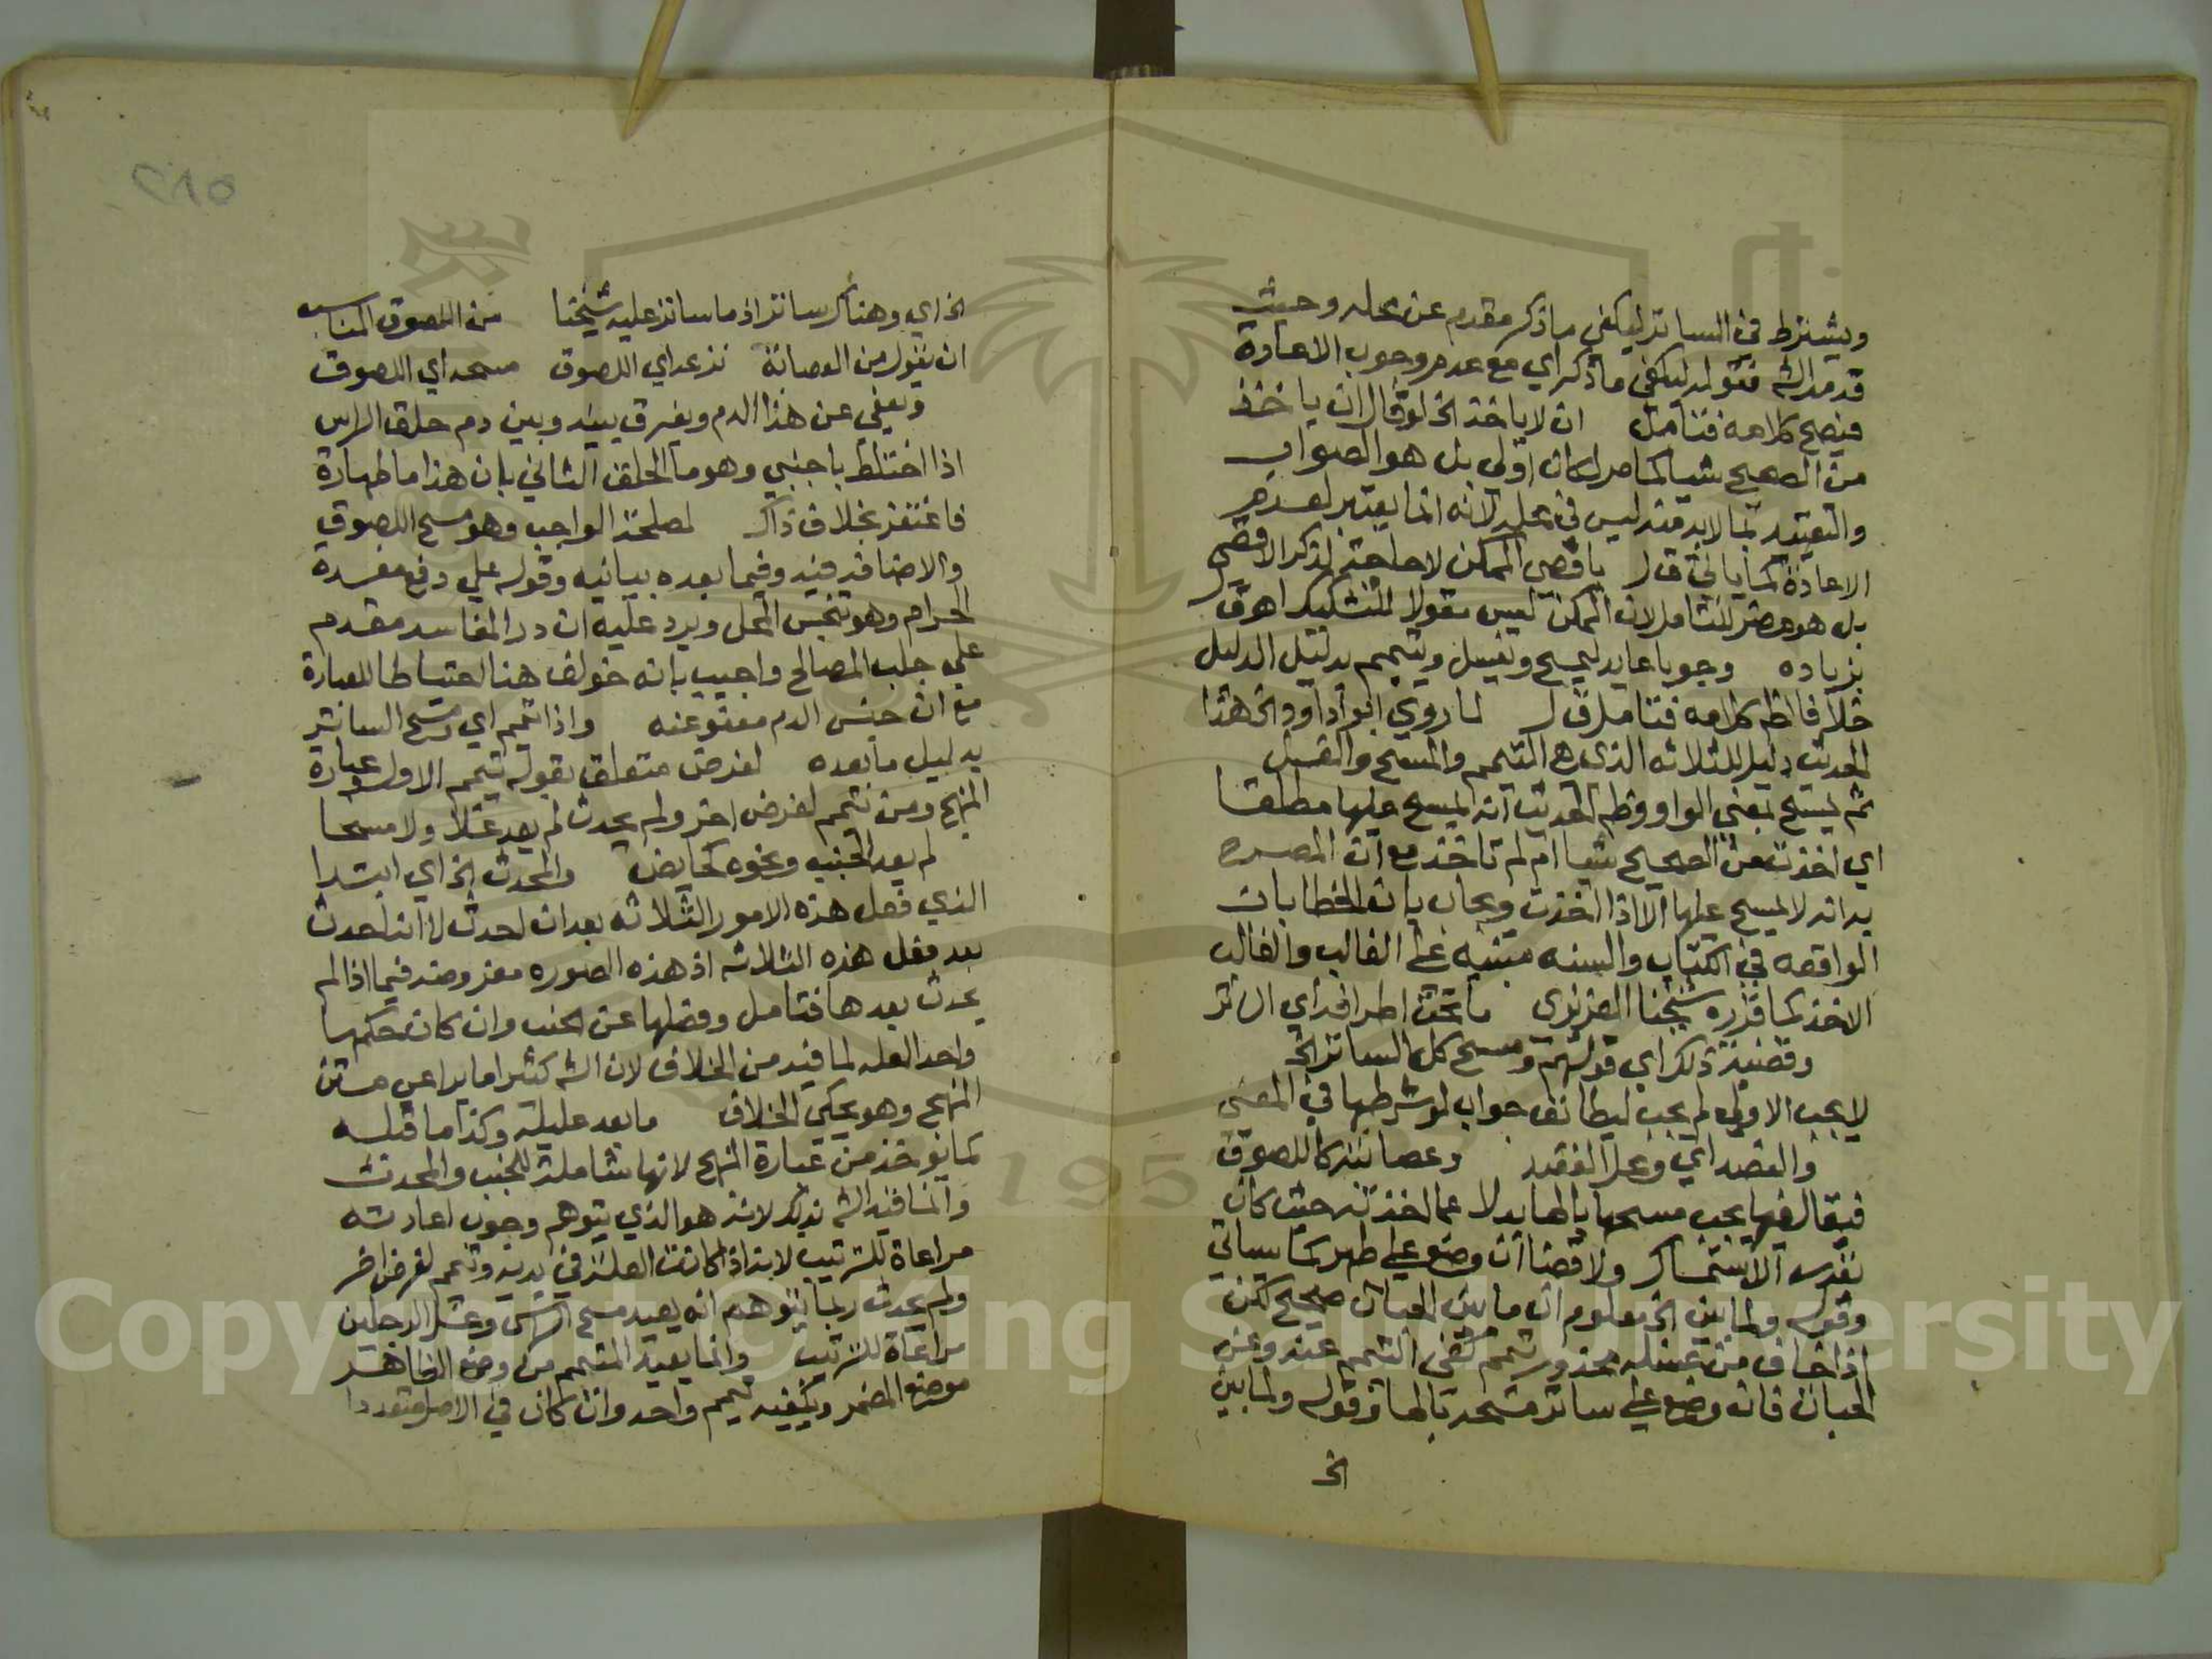 ويشترط في الساتر ليكفي ما ذكر مقدم عن محله وحيث
قدمه الش فقوله ليكفي ما ذكر اي مع عدم وجوب الاعادة
فيصح كلامه فتامل ان لا ياخذ الخ لو قال ان ياخذ
من الصحيح شيا كما مر لكان اولي بل هو الصواب
والتقييد بما لا بد منه ليس في محله لانه انما يعتبر لعدم
الاعادة كما ياتي قال باقصي الممكن لا حاجة لذكر الاقصي
بل هو مضر للتامل لان الممكن ليس مقولا للتشكيك اهـ ق
بزياده وجوبا عايد ليمسح ويغسل ويتيمم بدليل الدليل
خلافا لظ كلامه فتامل ق ل لما روي ابو داود الخ هذا
الحديث دليل للثلاثه الذي هي التيمم والمسح والغسل
ثم ليمسح بمعني الواو وظ الحديث انه ليمسح عليها مطلقا
اي اخذت من الصحيح شيا ام لم تاخذ مع ان المصرح
به انه لا يمسح عليها الا اذا اخذت ويجاب بان الخطابات
الواقعه في الكتاب والسنه مبنيه على الغالب والغالب
الاخذ كما قرره شيخنا العزيزي ما تحت اطرافه اي الساتر
وقضية ذلك اي قولهم ومسح كل الساتر الخ
لا يجب الاولي لم يجب ليطابق جواب لو شرطها في المعني
والفصد اي ومحل الفقد وعصابته كاللصوق
فيقال فيها يجب مسحها بالماء بدلا عما اخذته حيث كان
بقدر الاستمساك ولا قضا ان وضع على طهر كما سياتي
وقوله ولما بين الخ معلوم ان ما بين الحبات صحيح لكن
اذا خاف من غسله محذور تيمم كفي التيمم عنه وعن
الحبات فان وضع على ساتر مسحه بالماء وقوله ولما بين
الخ
الخ اي وهناك ساتر اذ ما ساتر عليه شيخنا من اللصوق المناسب
ان يقول من العصابة نزعه اي اللصوق مسحه اي اللصوق
ويعفي عن هذا الدم ويفرق بينه وبين دم حلق الراس
اذا اختلط باجنبي وهو ما الحلق الثاني بان هذا ما طهارة
فاغتفر بخلاف ذاك لمصلحة الواجب وهو مسح اللصوق
والاضافة فيه وفيما بعده بيانيه وقوله علي دفع مفسدة
الحرام وهو تنجس المحل ويرد عليه ان درا المفاسد مقدم
علي جلب المصالح واجيب بانه خولف هنا احتياطا للعبادة
مع ان جنس الدم معفو عنه واذا تيمم اي ومسح الساتر
بدليل ما بعده لفرض متعلق بقوله تيمم الاول وعبارة
المنهج ومن تيمم لفرض اخر ولم يحدث لم يعد غسلا ولا مسحا
لم يعد الجنب ونحوه كحايض والمحدث الخ اي ابتدا
الذي فعل هذه الامور الثلاثه بعد ان احدث لا انه احدث
بعد فعل هذه الثلاثه اذ هذه الصوره مفروضه فيما اذا لم
يحدث بعدها فتامل وفصلها عن الجنب وان كان حكمهما
واحد العله لما فيه من الخلاف لان الش كثيرا ما يراعي متن
المنهج وهو يحكي الخلاف ما بعد عليله وكذا ما قبله
كما يوخذ من عبارة المنهج لانها شاملة للجنب والمحدث
وانما قيد الش بذلك لانه هو الذي يتوهم وجوب اعادته
مراعاة للترتيب لانه اذا كانت العلة في يديه وتيمم لفرض اخر
ولم يحدث ربما يتوهم انه يعيد مسح الراس وغسل الرجلين
مراعاة للترتيب وانما يعيد المتيمم من وضع الظاهر
موضع المضمر ويكفيه تيمم واحد وان كان في الاصل متعددا